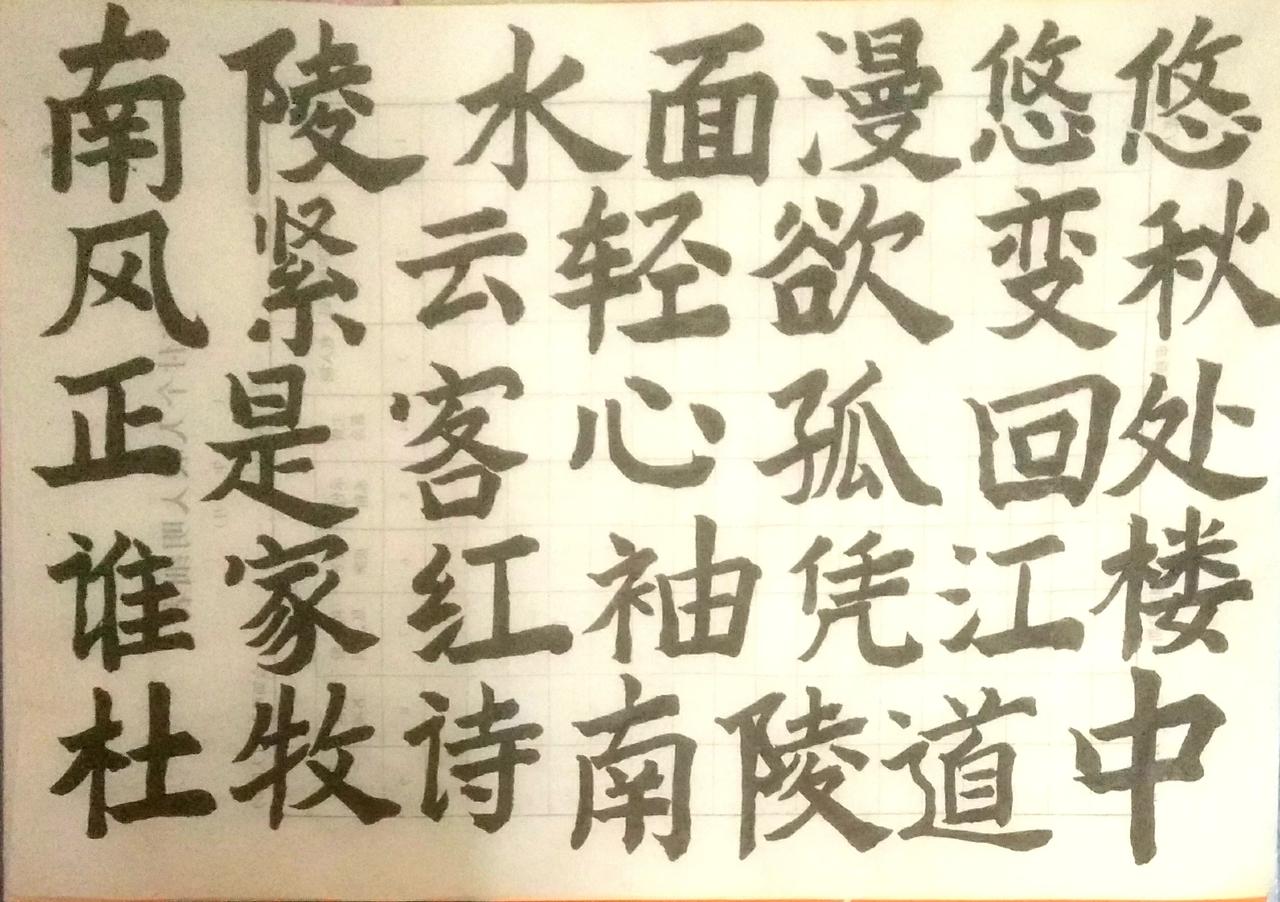 南陵水面漫悠悠
风紧云轻欲变秋
正是客心孤回处
谁家红袖凭江楼
杜牧诗南陵道中